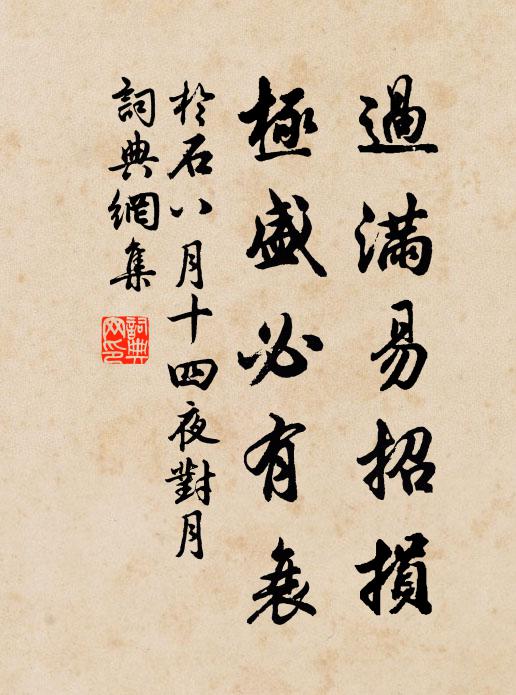 過滿易招損
極盛必有衰
於石八月十四夜對月
詞典網集
詞典网印